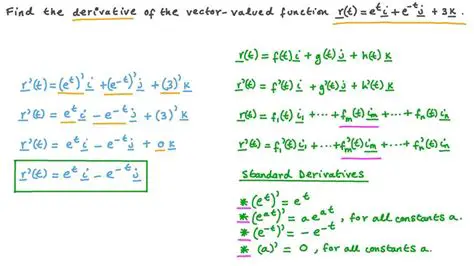 Find the derivative of the vector-valued function r(t) = eᵗi + e⁻ᵗj + 3k.
r'(t) = (eᵗ)'i + (e⁻ᵗ)'j + (3)'k
r'(t) = eᵗi - e⁻ᵗj + (3)'k
r'(t) = eᵗi - e⁻ᵗj + 0k
r'(t) = eᵗi - e⁻ᵗj
r(t) = f(t)i + g(t)j + h(t)k
r'(t) = f'(t)i + g'(t)j + h'(t)k
r(t) = f₁(t)i₁ + ··· + fₘ(t)iₘ + ··· + fₙ(t)iₙ
r'(t) = f₁'(t)i₁ + ··· + fₘ'(t)iₘ + ··· + fₙ'(t)iₙ
Standard Derivatives
* (eᵗ)' = eᵗ
* (eᵃᵗ)' = aeᵃᵗ, for all constants a.
* (e⁻ᵗ)' = -e⁻ᵗ
* (a)' = 0, for all constants a.